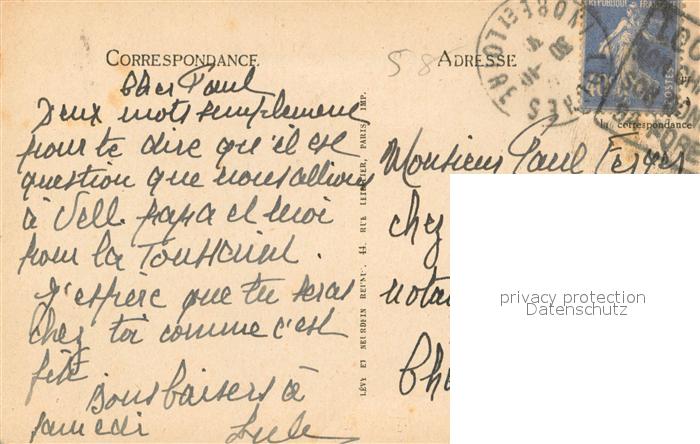 CORRESPONDANCE
ADRESSE
58
RÉPUBLIQUE FRANÇAISE
POSTES
40
la correspondance
Cher Paul
Deux mots simplement
pour te dire qu'il est
question que nous allions
à Vell. papa et moi
pour la Toussaint.
J'espère que tu seras
chez toi comme c'est
fête
Bons baisers à
samedi
LÉVY ET NEURDEIN RÉUNIS, 44, RUE LETELLIER, PARIS, IMP.
Monsieur Paul
chez
nota
privacy protection
Datenschutz